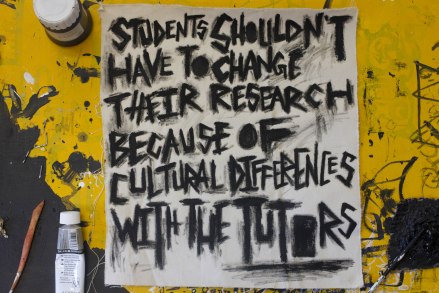 STUDENTS SHOULDN'T
HAVE TO CHANGE
THEIR RESEARCH
BECAUSE OF
CULTURAL DIFFERENCES
WITH THE TUTORS